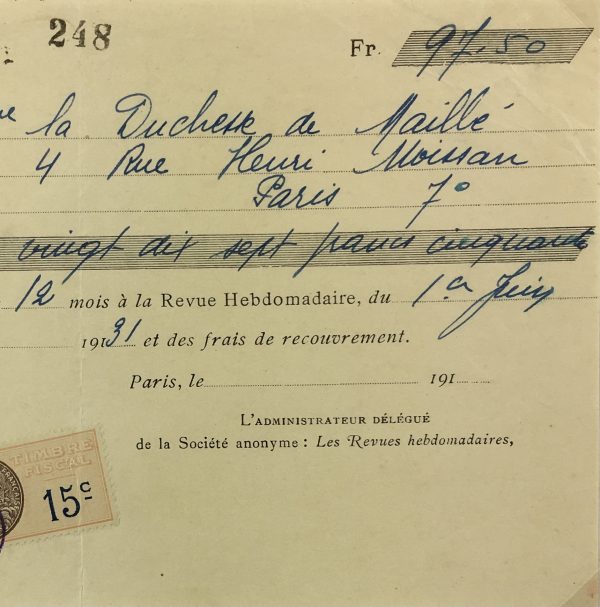 248
Fr. 97.50
la Duchesse de Maillé
4 Rue Henri Moissan
Paris 7º
vingt dix sept francs cinquante
12 mois à la Revue Hebdomadaire, du 1er Juin
1931 et des frais de recouvrement.
Paris, le 191
L'ADMINISTRATEUR DÉLÉGUÉ
de la Société anonyme : Les Revues hebdomadaires,
TIMBRE
FISCAL
15c